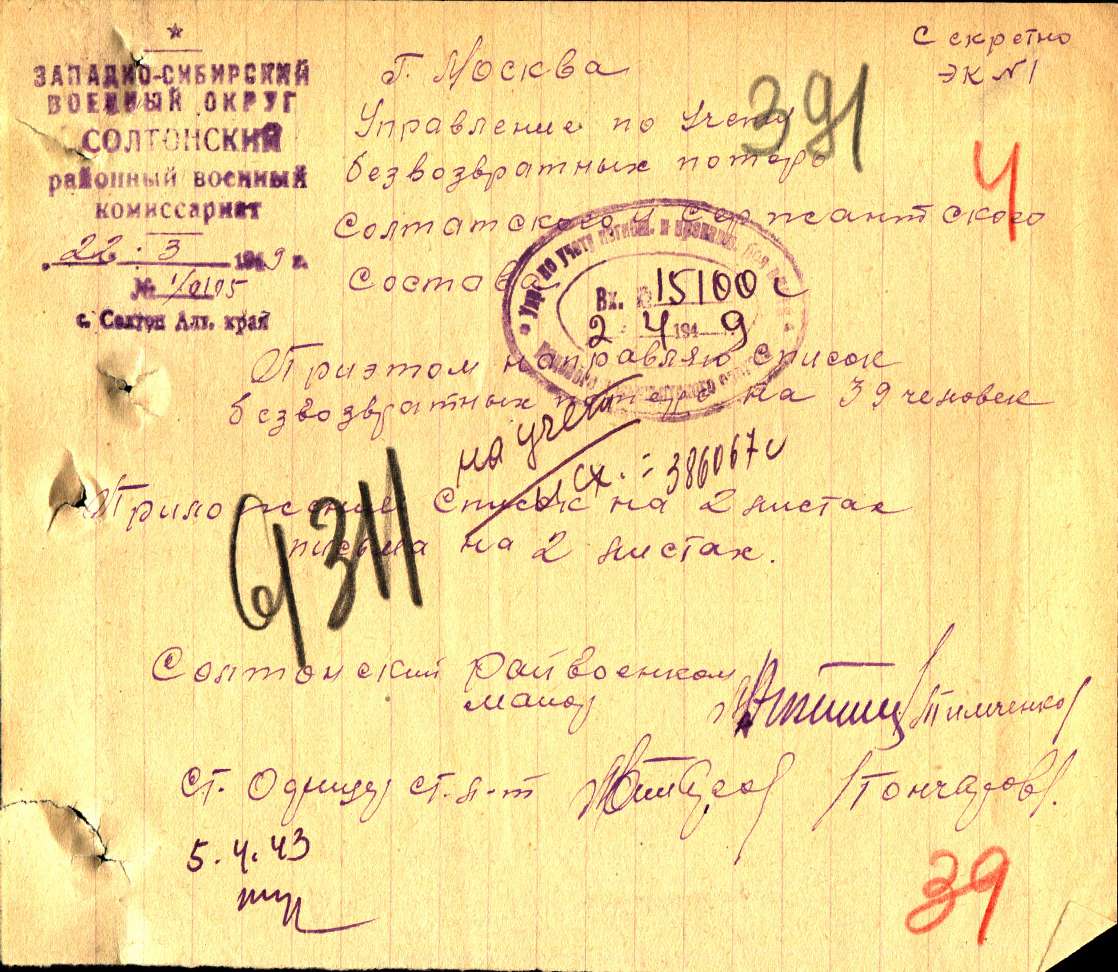 Секретно
ЭК №1
ЗАПАДНО-СИБИРСКИЙ
ВОЕННЫЙ ОКРУГ
СОЛТОНСКИЙ
районный военный
комиссариат
22. 3 1949 г.
№ 1/0105
с. Солтон Алт. край
г. Москва
Управление по учету
безвозвратных потерь
солтатского и сержантского
состава
391
4
Вх. № 15100с
2 4 1949
Приэтом направляю список
безвозвратных потерь на 39 человек
на учете
исх.: 386067с
Приложение список на 2 листах
письма на 2 листах.
Солтонский райвоенком
майор
Тимченко/
ст. Офицер ст. л-т
/Гончаров/.
5.4.43
39